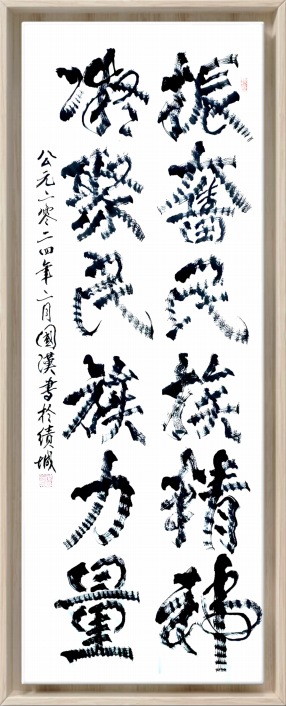 振奮民族精神
凝聚民族力量
公元二零二四年二月國漢書於績城